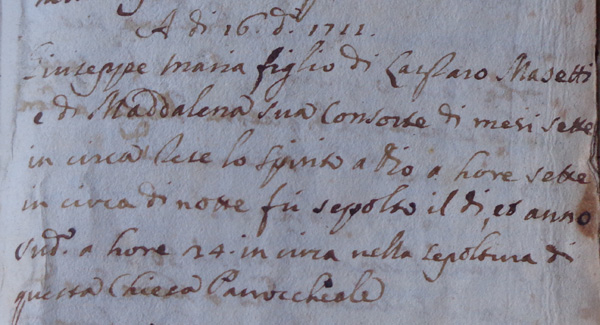 A di 16. d.º 1711.
Giuseppe Maria figlio di Gasparo Masetti
e di Maddalena sua Consorte di mesi sette
in circa rese lo spirito a Dio a hore sette
in circa di notte fù sepolto il dì, et anno
sud.º a hore 24. in circa nella sepoltura di
questa Chiesa Parrocchiale